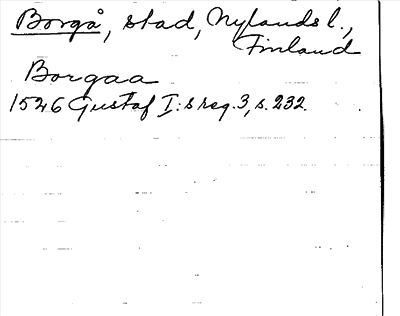 Borgå, stad, Nylands l.,
Finland
Borgaa
1526 Gustaf I:s reg. 3, s. 232.